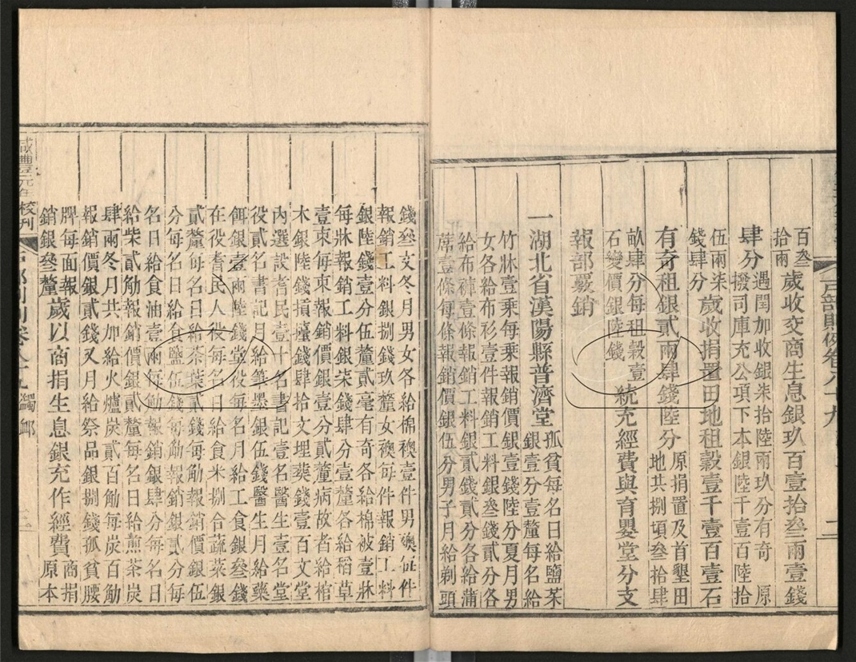 百叁拾兩歲收交商生息銀玖百壹拾叁兩壹錢
肆分遇閏加收銀柒拾陸兩玖分有奇原撥司庫充公項下本銀陸千壹百陸拾
伍兩柒錢肆分歲收捐置田地租穀壹千壹百壹石
有奇租銀貳兩肆錢陸分原捐置及首墾田地共捌頃叁拾肆
畝肆分每租穀壹石變價銀陸錢統充經費與育嬰堂分支
報部覈銷
一湖北省漢陽縣普濟堂孤貧每名日給鹽菜銀壹分壹釐每名給
竹牀壹乗每乗報銷價銀壹錢陸分夏月男女各給布衫壹件報銷工料銀叁錢貳分各
給布褲壹條報銷工料銀貳錢貳分各給蒲蓆壹條每條報銷價銀伍分男子月給剃頭
錢叁文冬月男女各給棉襖壹件男襖每件報銷工料銀捌錢玖釐女襖每件報銷工料
銀陸錢壹分伍釐貳毫有奇各給棉被壹牀每牀報銷工料銀柒錢肆分壹釐各給稻草
壹束每束報銷銀壹分貳釐病故者給棺木銀陸錢損櫝錢肆拾文埋葬錢壹百文堂
內選設耆民壹十名書記壹名醫生壹名堂役貳名書記月給筆墨銀伍錢醫生月給藥
餌銀壹兩陸錢堂役每名月給工食銀叁錢在役耆民人役每名日給食米捌合蔬菜銀
貳釐每名日給茶葉貳錢每觔報銷價銀伍分每名日給食鹽伍錢每觔報銷銀貳分每
名日給食油壹兩每觔報銷銀肆分每名日給柴貳觔報銷價銀貳釐每名日給煎茶炭
肆兩冬月共加給火爐炭貳百觔每炭百觔報銷價銀貳錢又月給祭品銀捌錢孤貧腰
牌每面報銷銀叁釐歲以商捐生息銀充作經費商捐原本
咸豐元年校刊